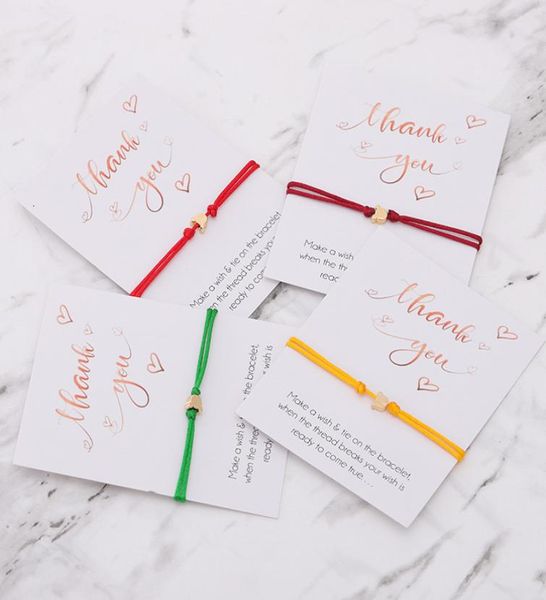 thank
you
Make a wish & tie on the bracelet,
when the thread breaks your
ready to come
thank
you
Make a wish & tie on
when the thread bre
ready to
thank
you
Make a wish & tie on the bracelet,
when the thread breaks your wish is
ready to come true...
thank
you
Make a wish & tie on the bracelet,
when the thread breaks your wish is
ready to come true....